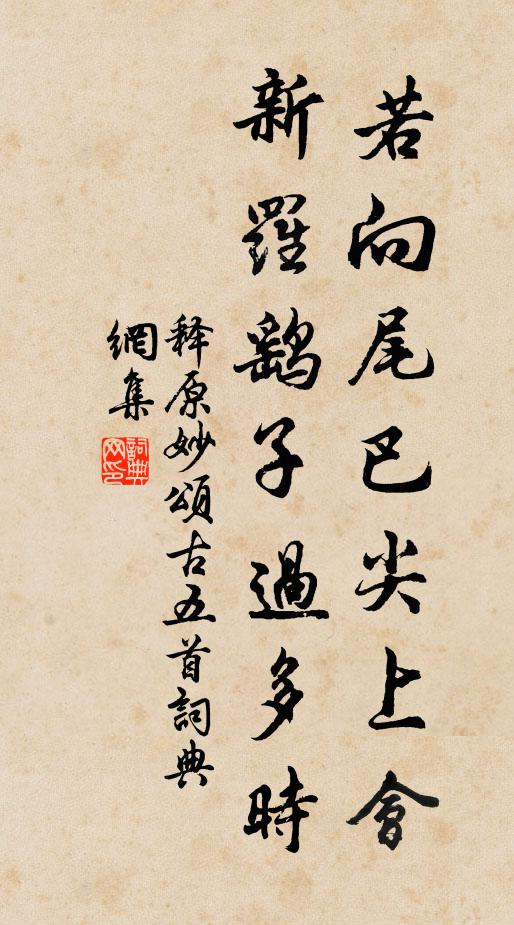 若向尾巴尖上會
新羅鷂子過多時
释原妙頌古五首詞典
網集
詞典網印